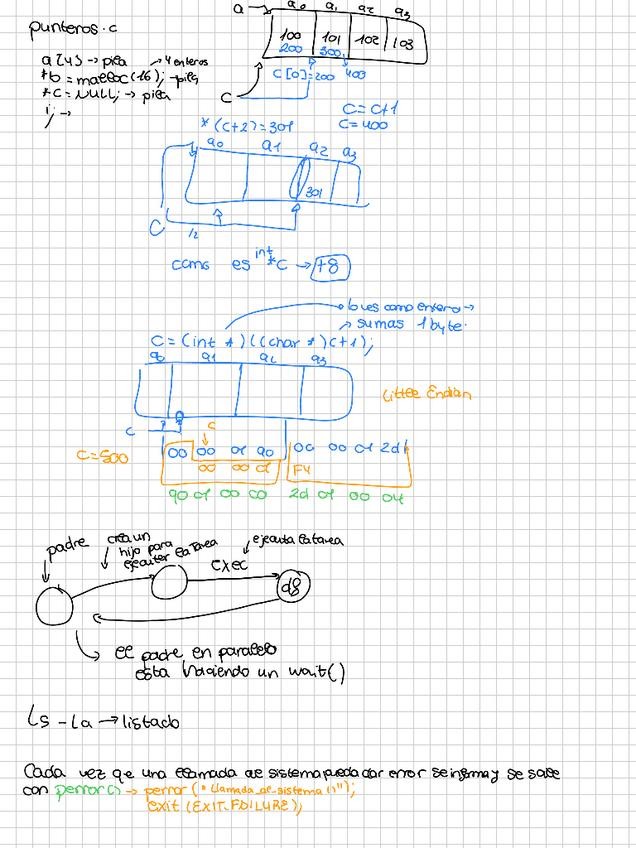 punteros.c
a → a0 a1 a2 a3
100 101 102 103
200 300
a[4] → pila → 4 enteros
*b = malloc(16); → pila
*c = NULL; → pila
i; →
C[0]=200 400
C
C = C+1
C = 400
*(C+2)=301
a0 a1 a2 a3
301
C
como es int *C → +8
bues como entero →
→ sumas 1 byte.
C = (int *)((char *)C+1);
a0 a1 a2 a3
Little Endian
C
C
C=500
00 00 01 90 00 00 01 2d
00 00 01 F4
90 01 00 00 2d 01 00 04
padre
crea un
hijo para
ejecutar la tarea
ejecuta la tarea
exec
→ el padre en paralelo
esta haciendo un wait()
Ls -La → listado
Cada vez qe una llamada al sistema pueda dar error se informa y se sale
con perror() → perror("Llamada_al_sistema()");
exit (EXIT_FAILURE);